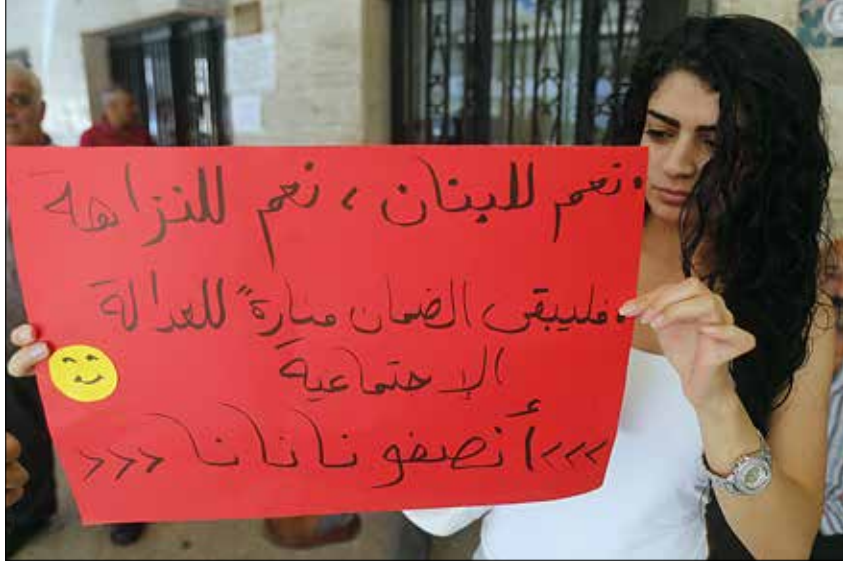 • نعم للبنان ، نعم للنزاهة
• فليبقى الضمان منارةً للعدالة
الإحتماعية
>>> أنصفونانانا <<<